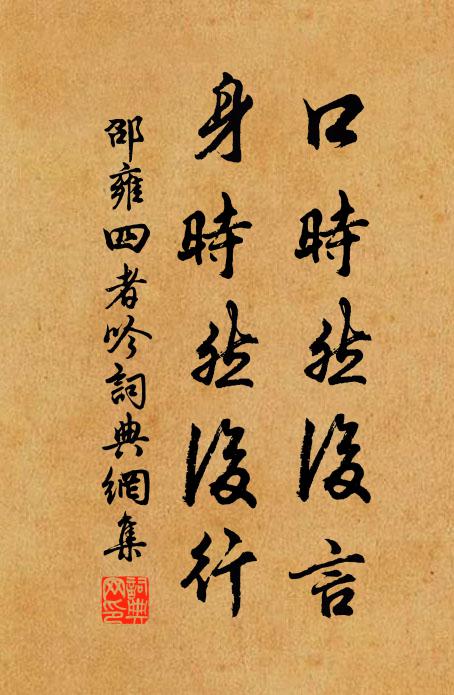 口時然後言
身時然後行
邵雍四者吟詞典網集
詞典网印